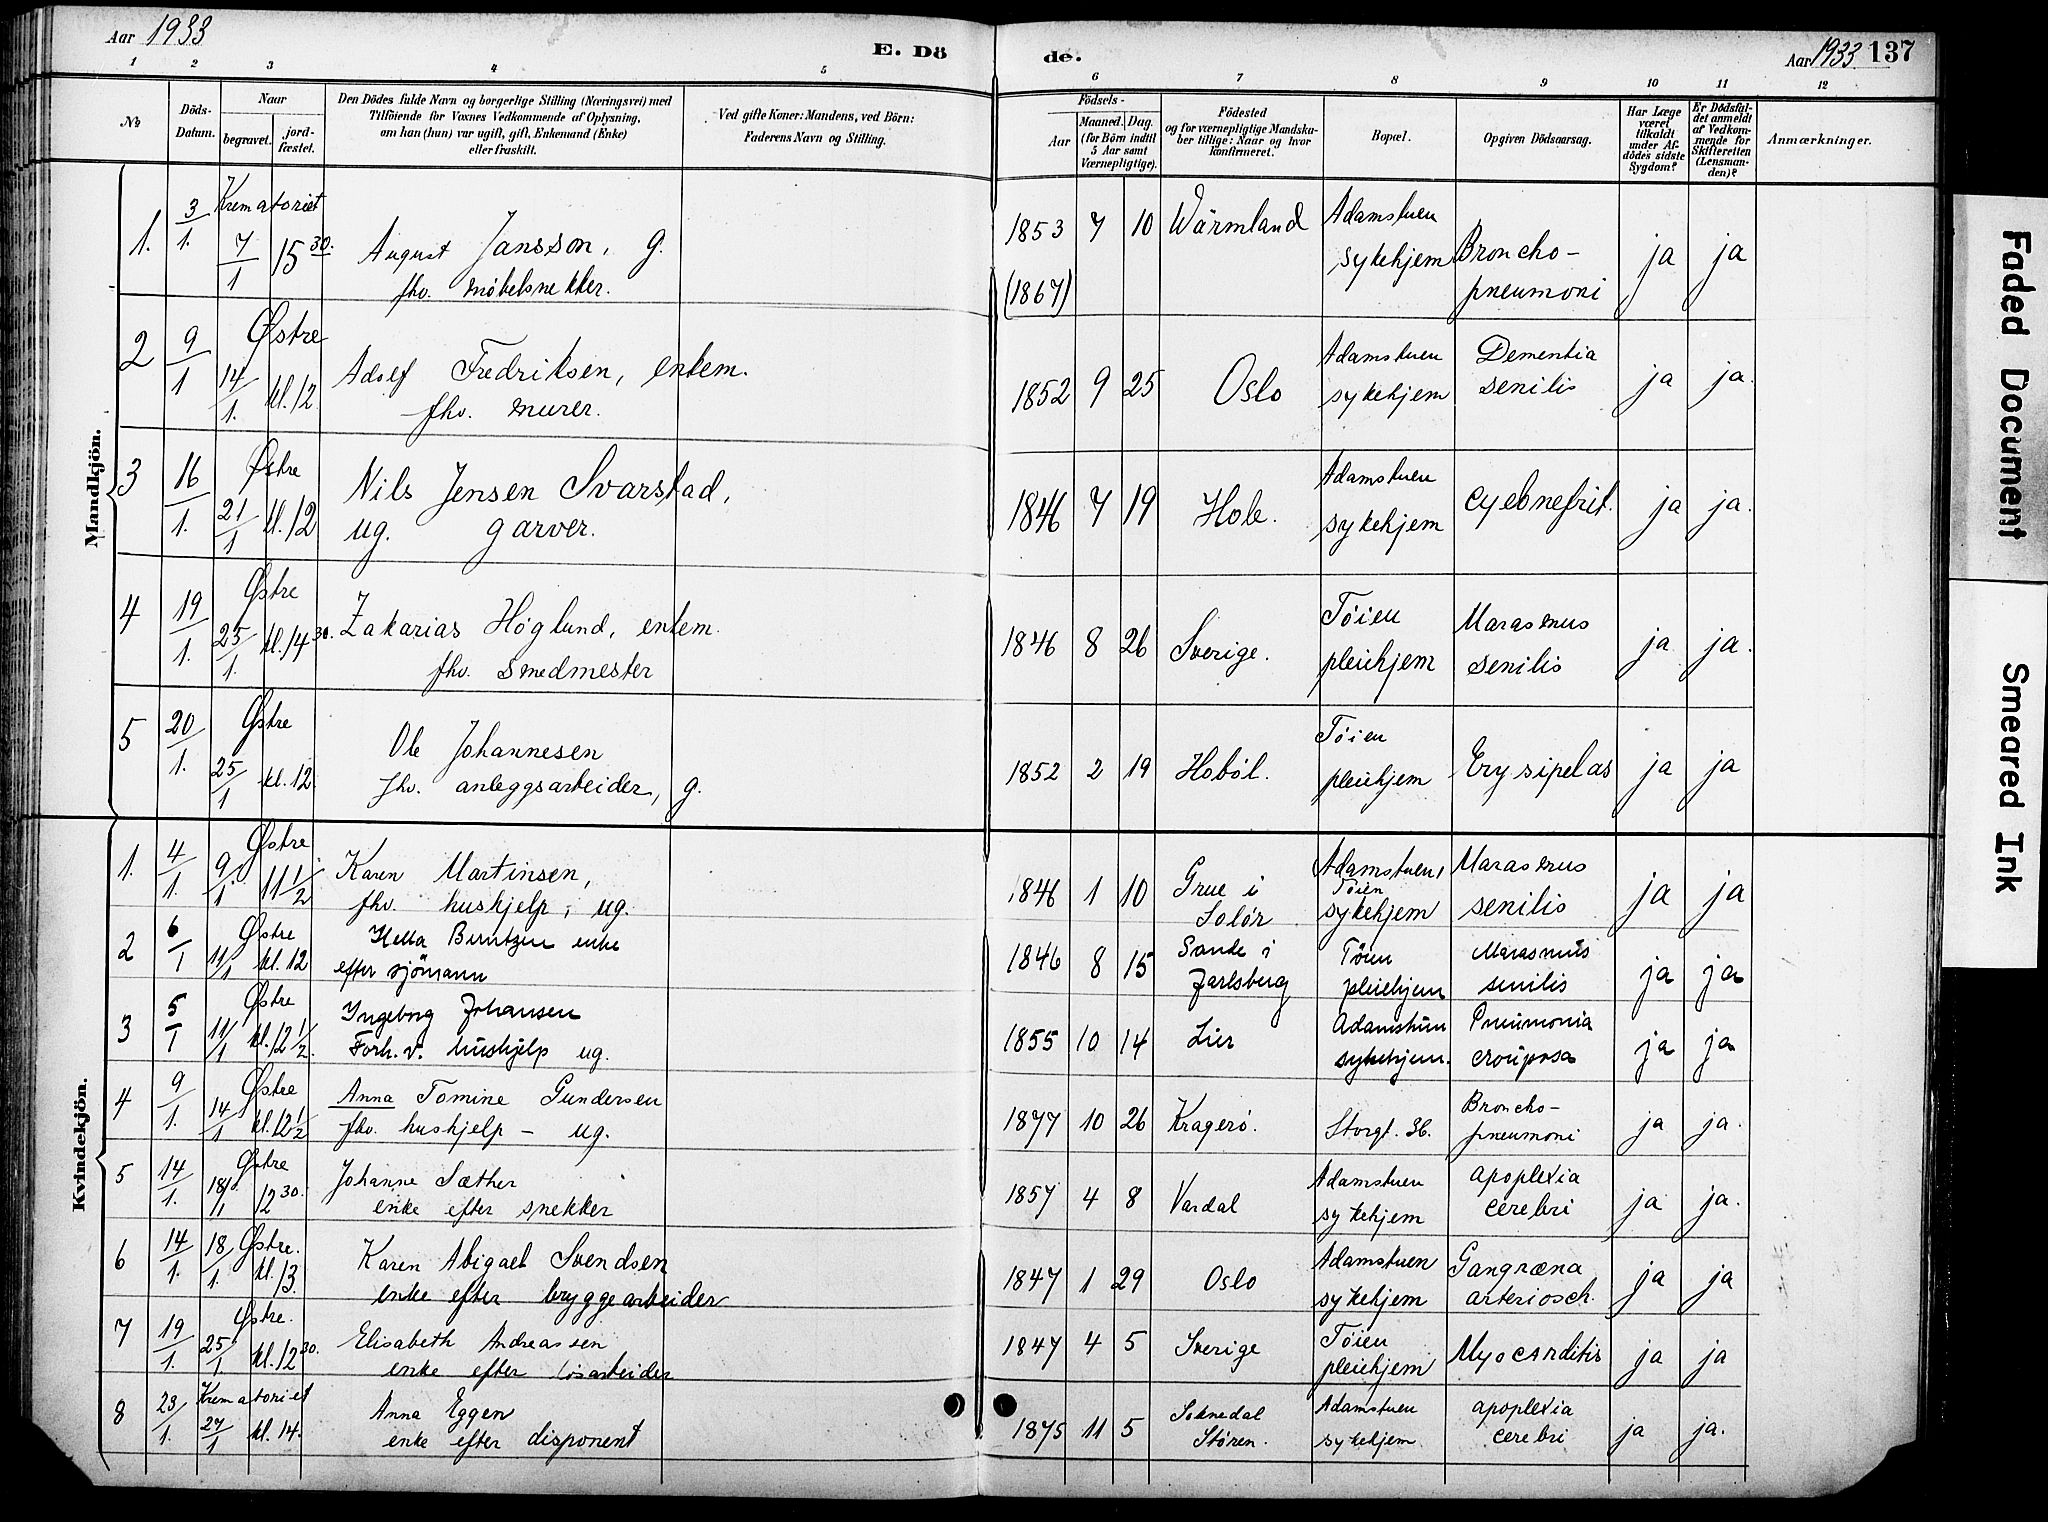 Aar 1933
E. Dö
de.
Aar 1933 137
1 2 3 4 5 6 7 8 9 10 11 12
No
Döds-Datum.
Naar
begravet.
jord-fæstet.
Den Dödes fulde Navn og borgerlige Stilling (Næringsvei) med
Tilföiende for Voxnes Vedkommende af Oplysning,
om han (hun) var ugift, gift, Enkemand (Enke)
eller fraskilt.
Ved gifte Koner: Mandens, ved Börn:
Faderens Navn og Stilling.
Födsels-
Aar
Maaned. Dag.
(for Börn indtil
5 Aar samt
Værnepligtige).
Födested
og for værnepligtige Mandska-
ber tillige: Naar og hvor
konfirmeret.
Bopæl.
Opgiven Dödsaarsag.
Har Læge
været
tilkaldt
under Af-
dödes sidste
Sygdom?
Er Dödsfal-
det anmeldt
af Vedkom-
mende for
Skifteretten
(Lensman-
den)?
Anmærkninger.
Mandkjön.
1. 3/1. Krematoriet 7/1 15 30. August Jansson, g.
fhv. møbelsnekker.
1853 7 10 Wärmland Adamstuen
sykehjem Broncho-
pneumoni ja ja
(1867)
2 9/1 Østre 14/1. kl. 12. Adolf Fredriksen, enkem.
fhv. murer.
1852 9 25 Oslo Adamstuen
sykehjem Dementia
senilis ja ja.
3 16/1. Østre 21/1 kl. 12 Nils Jensen Svarstad,
ug. garver.
1846 7 19 Hole. Adamstuen
sykehjem ja ja.
4 19/1. Østre 25/1. kl. 14 30. Zakarias Høglund, enkem.
fhv. smedmester
1846 8 26 Sverige. Tøien
pleiehjem Marasmus
senilis ja ja.
5 20/1. Østre 25/1 kl. 12. Ole Johannesen
fhv. anleggsarbeider, g.
1852 2 19 Hobøl. Tøien
pleiehjem Erysipelas ja ja
Kvindekjön.
1. 4/1. Østre 9/1. 11 1/2 Karen Martinsen,
fhv. hushjelp, ug.
1846 1 10 Grue i
Solør Adamstuen,
Tøien
sykehjem Marasmus
senilis ja ja
2 6/1 Østre 11/1 kl. 12 Helta Berntzen enke
efter sjömann
1846 8 15 Sande i
Jarlsberg Töien
pleiehjem Marasmus
senilis ja ja
3 5/1 Østre 11/1 kl. 12 1/2. Ingeborg Johansen
Forh. v. hushjelp ug.
1855 10 14 Lier Adamstuen
sykehjem. Pneumonia
crouposa ja ja
4 9/1. Østre 14/1 kl. 12 1/2 Anna Tomine Gundersen
fhv. hushjelp - ug.
1877 10 26 Kragerø. Storgt. 36. Broncho-
pneumoni ja ja.
5 14/1. Østre 18/1. 12 30. Johanne Sæther
enke efter snekker
1857 4 8 Vardal Adamstuen
sykehjem apoplexia
cerebri ja ja.
6 14/1. 18/1. Østre. kl. 13. Karen Abigael Svendsen
enke efter bryggearbeider
1847 1 29 Oslo Adamstuen
sykehjem Gangræna
arteriosch. ja ja
7 19/1. Østre. 25/1. kl. 12 30. Elisabeth Andreassen
enke efter løsarbeider
1847 4 5 Sverige Tøien
pleiehjem Myocarditis ja ja
8 23/1. Krematoriet 27/1 kl. 14. Anna Eggen
enke efter disponent
1875 11 5 Soknedal
Støren. Adamstuen
sykehjem. apoplexia
cerebri ja ja.
Faded Document
Smeared Ink